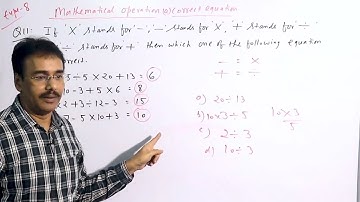 Type-8
Mathematical operation & Correct equation
Q11: If 'X' stands for '-', '-' stands for 'X', '+' stands for '÷'
stands for '+' then which one of the following equation
correct.
- = X
+ = ÷
5 ÷ 5 X 20 + 13 = 6
- 10 - 3 + 5 X 6 = 8
2 + 3 ÷ 12 - 3 = 15
- 5 X 10 + 3 = 10
a) 20 ÷ 13
b) 10 X 3 ÷ 5
c) 2 ÷ 3
d) 10 ÷ 3
10 X 3
5